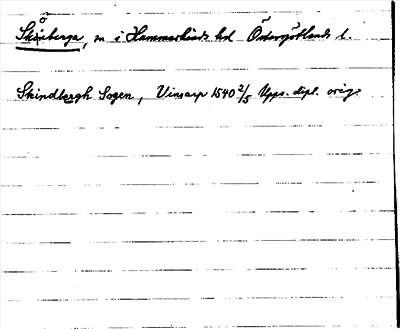 Sköneberga, sn i Hammarkinds hd Östergötlands l.
Skindbergh Sogen, Vinsarp 1540 2/5 Upps. dipl. orig.